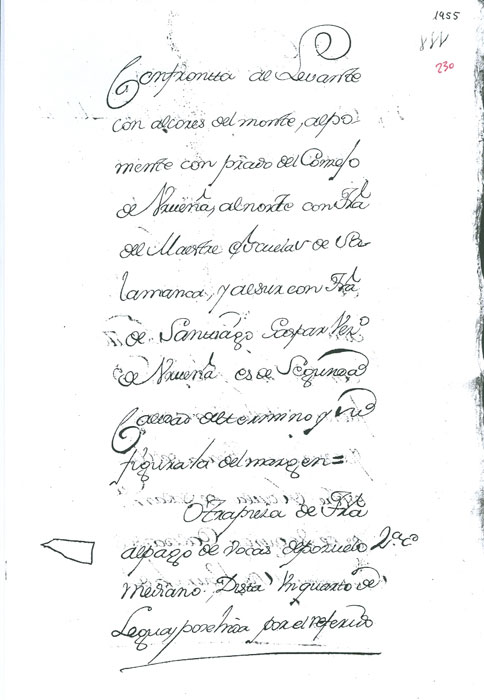 1955
230
Confronta al Levante
con alcores del monte, alpo-
niente con prado del Consejo
de Urueña, al norte con Trã
del Maestre Escuela de Sa-
lamanca, y al sur con Trã
de Santiago Gaspar Vezº
de Urueña es de Segunda
Calidad del termino y su
figura la del margen =
Otra pieza de Trã
al pago de Vocas del pozuelo 2ª Cª
Mediano. Dista Un quarto de
Legua, y por linda por el referido